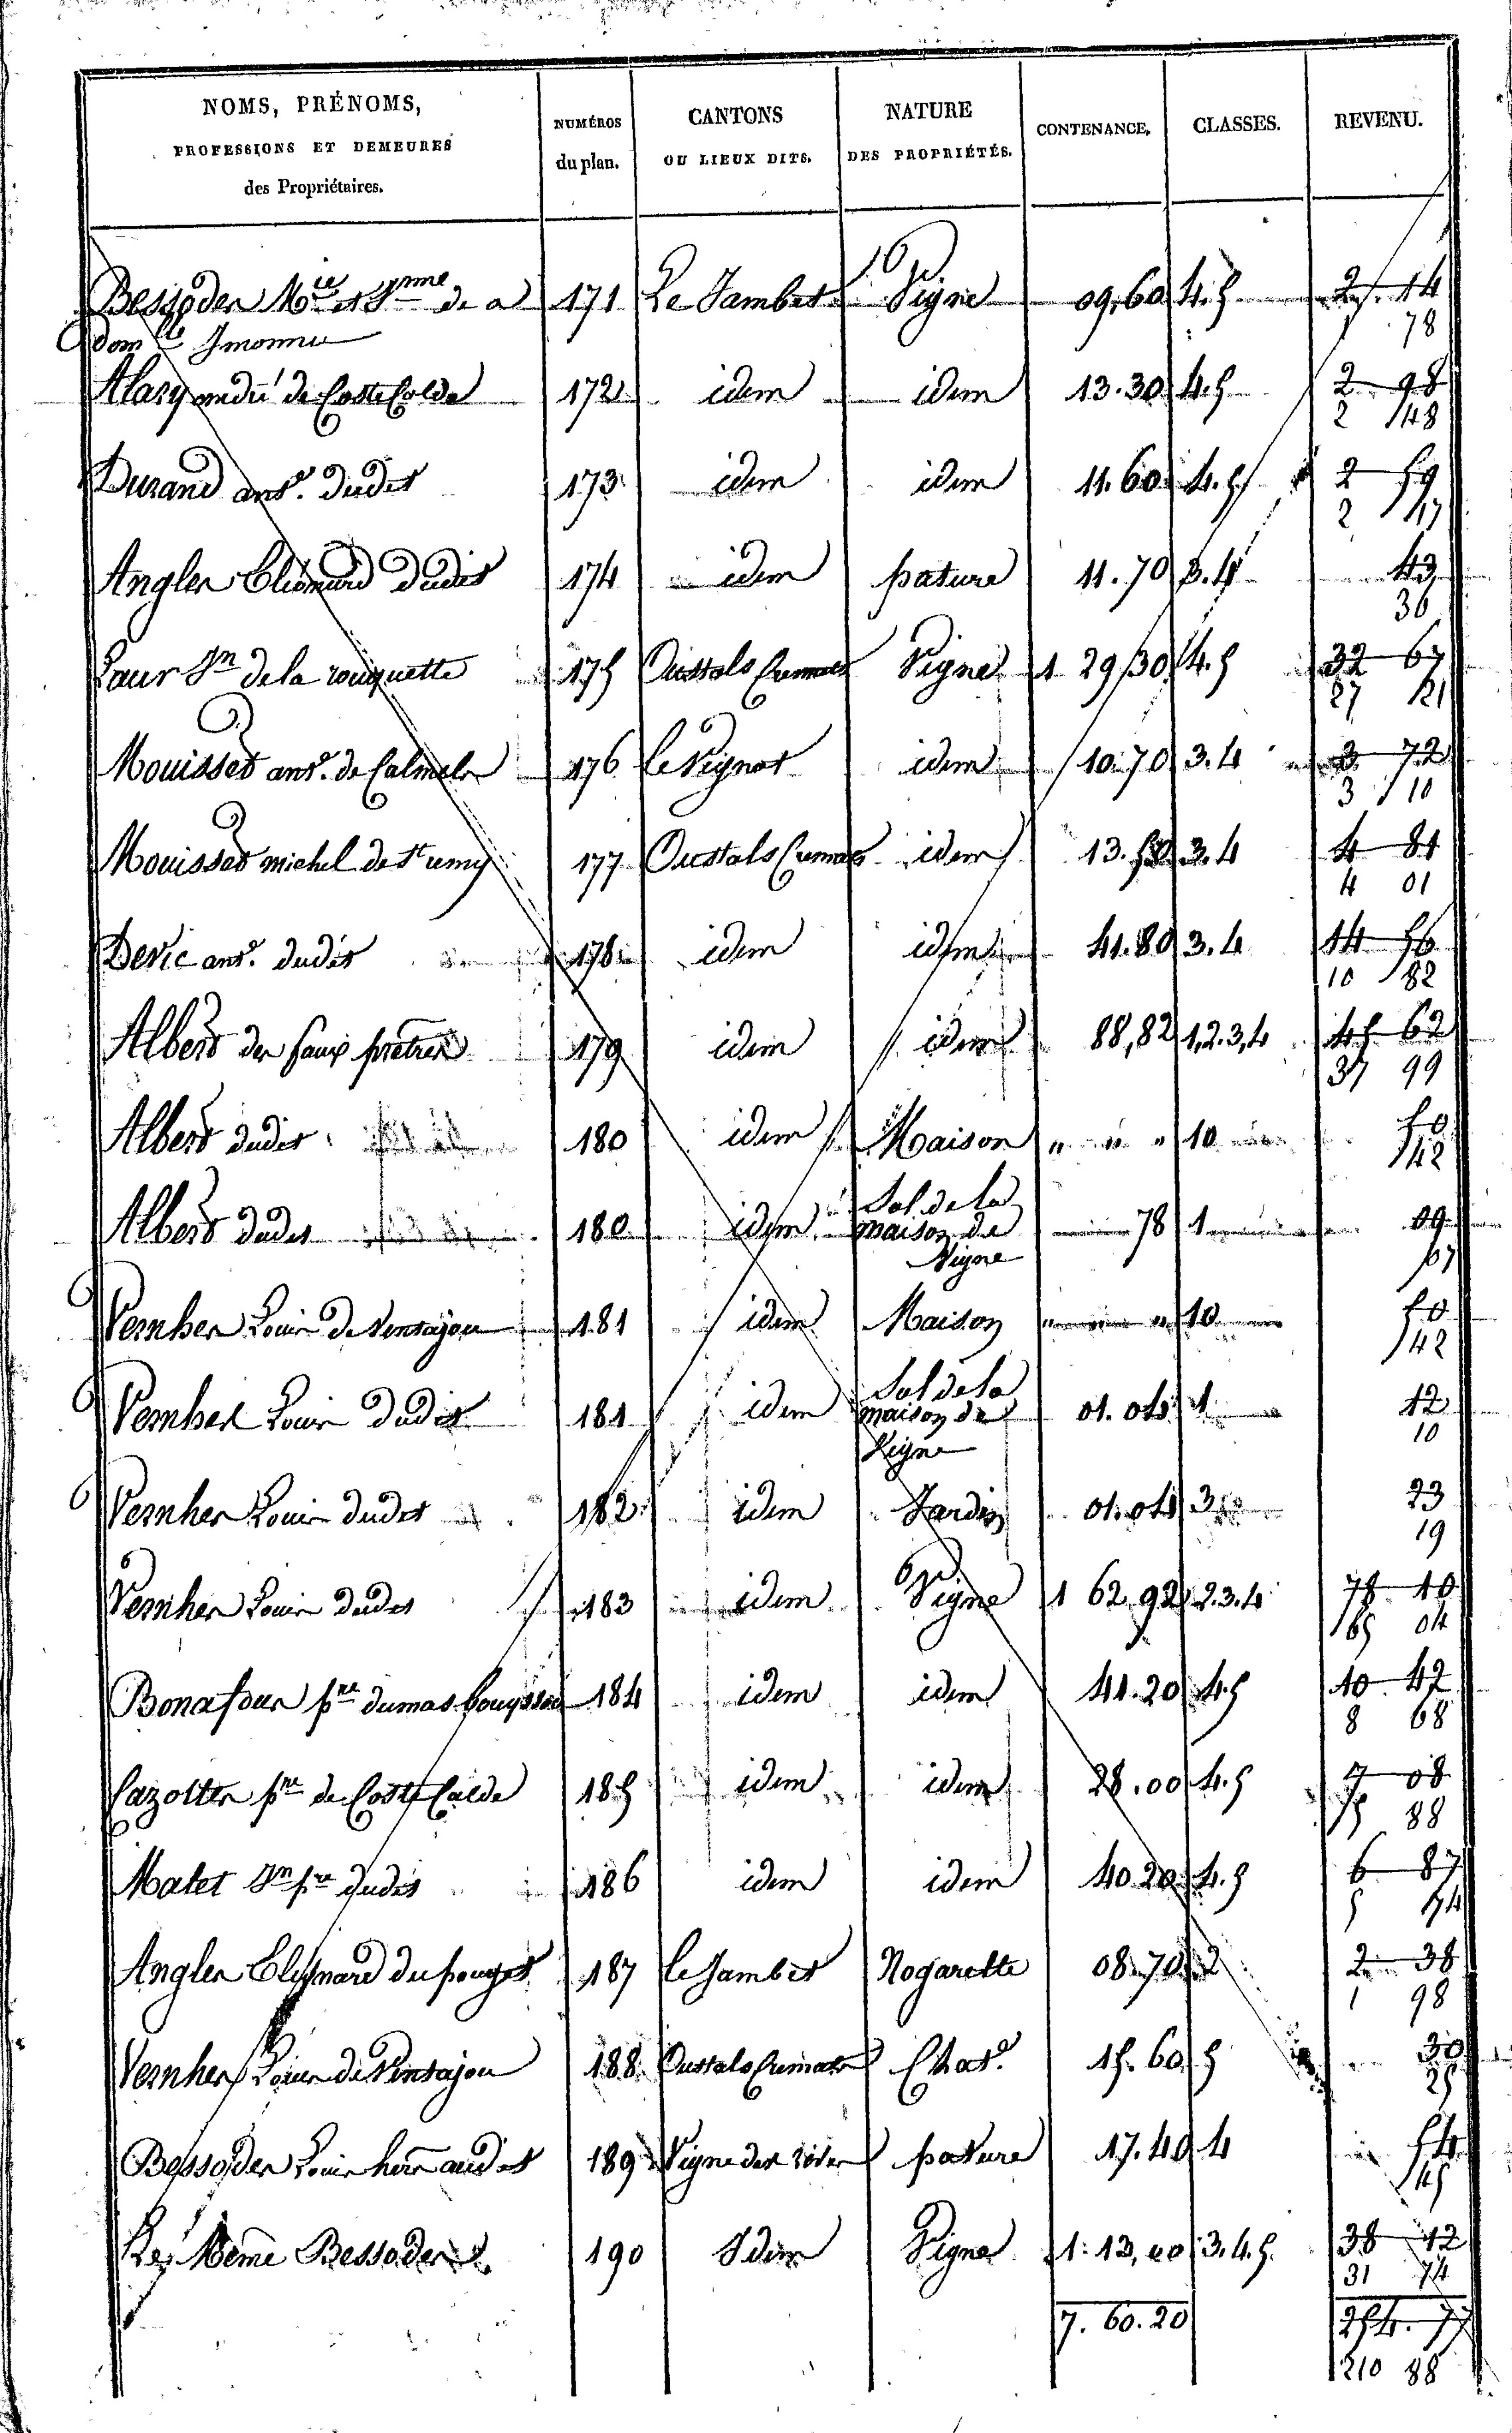 NOMS, PRÉNOMS, PROFESSIONS ET DEMEURES des Propriétaires. NUMÉROS du plan. CANTONS OU LIEUX DITS. NATURE DES PROPRIÉTÉS. CONTENANCE. CLASSES. REVENU.
171 Le Jambet Vigne 09,60 4.5 2 14
1 78
Alary de Coste Calde 172 idem idem 13.30 4.5 2 98
2 48
Durand ant. dudit 173 idem idem 11.60 4.5 2 59
2 17
Angles dudit 174 idem pature 11.70 3.4 43
36
de la rouquette 175 Oustals Cremats Vigne 1 29,30 4.5 32 67
27 21
Mouisset ant. de Calmels 176 le Vignot idem 10.70 3.4 3 72
3 10
Mouisset michel de 177 Oustals Cremats idem 13. 3.4 4 81
4 01
Devic ant. dudit 178 idem idem 41.80 3.4 14 56
10 82
Albert 179 idem idem 88,82 1,2.3,4 45 62
37 99
Albert dudit 180 idem Maison " " " 10 50
42
Albert dudit 180 idem Sol de la maison de Vigne 78 1 09
07
Vernhes Louis de Ventajou 181 idem Maison " " 10 50
42
Vernhes Louis dudit 181 idem Sol de la maison de Vigne 01.04 1 12
10
Vernhes Louis dudit 182 idem Jardin 01.04 3 23
19
Vernhes Louis dudit 183 idem Vigne 1 62 92 2.3.4 78 10
65 04
Bonafous pre dumas 184 idem idem 41.20 4.5 10 42
8 68
Cazottes pre de Coste Calde 185 idem idem 28.00 4.5 7 08
5 88
Matet dudit 186 idem idem 40 20 4.5 6 87
5 74
Angles du pouget 187 le Jambet Nogarette 08.70 2 2 38
1 98
Vernhes Louis de Ventajou 188 Oustals Cremats Chat. 15.60 5 30
25
Bessodes Louis 189 Vigne des pature 17.40 4 54
45
Le Meme Bessodes 190 Idem Vigne 1.13, 3.4.5. 38 12
31 74
7. 60.20 254. 77
210 88